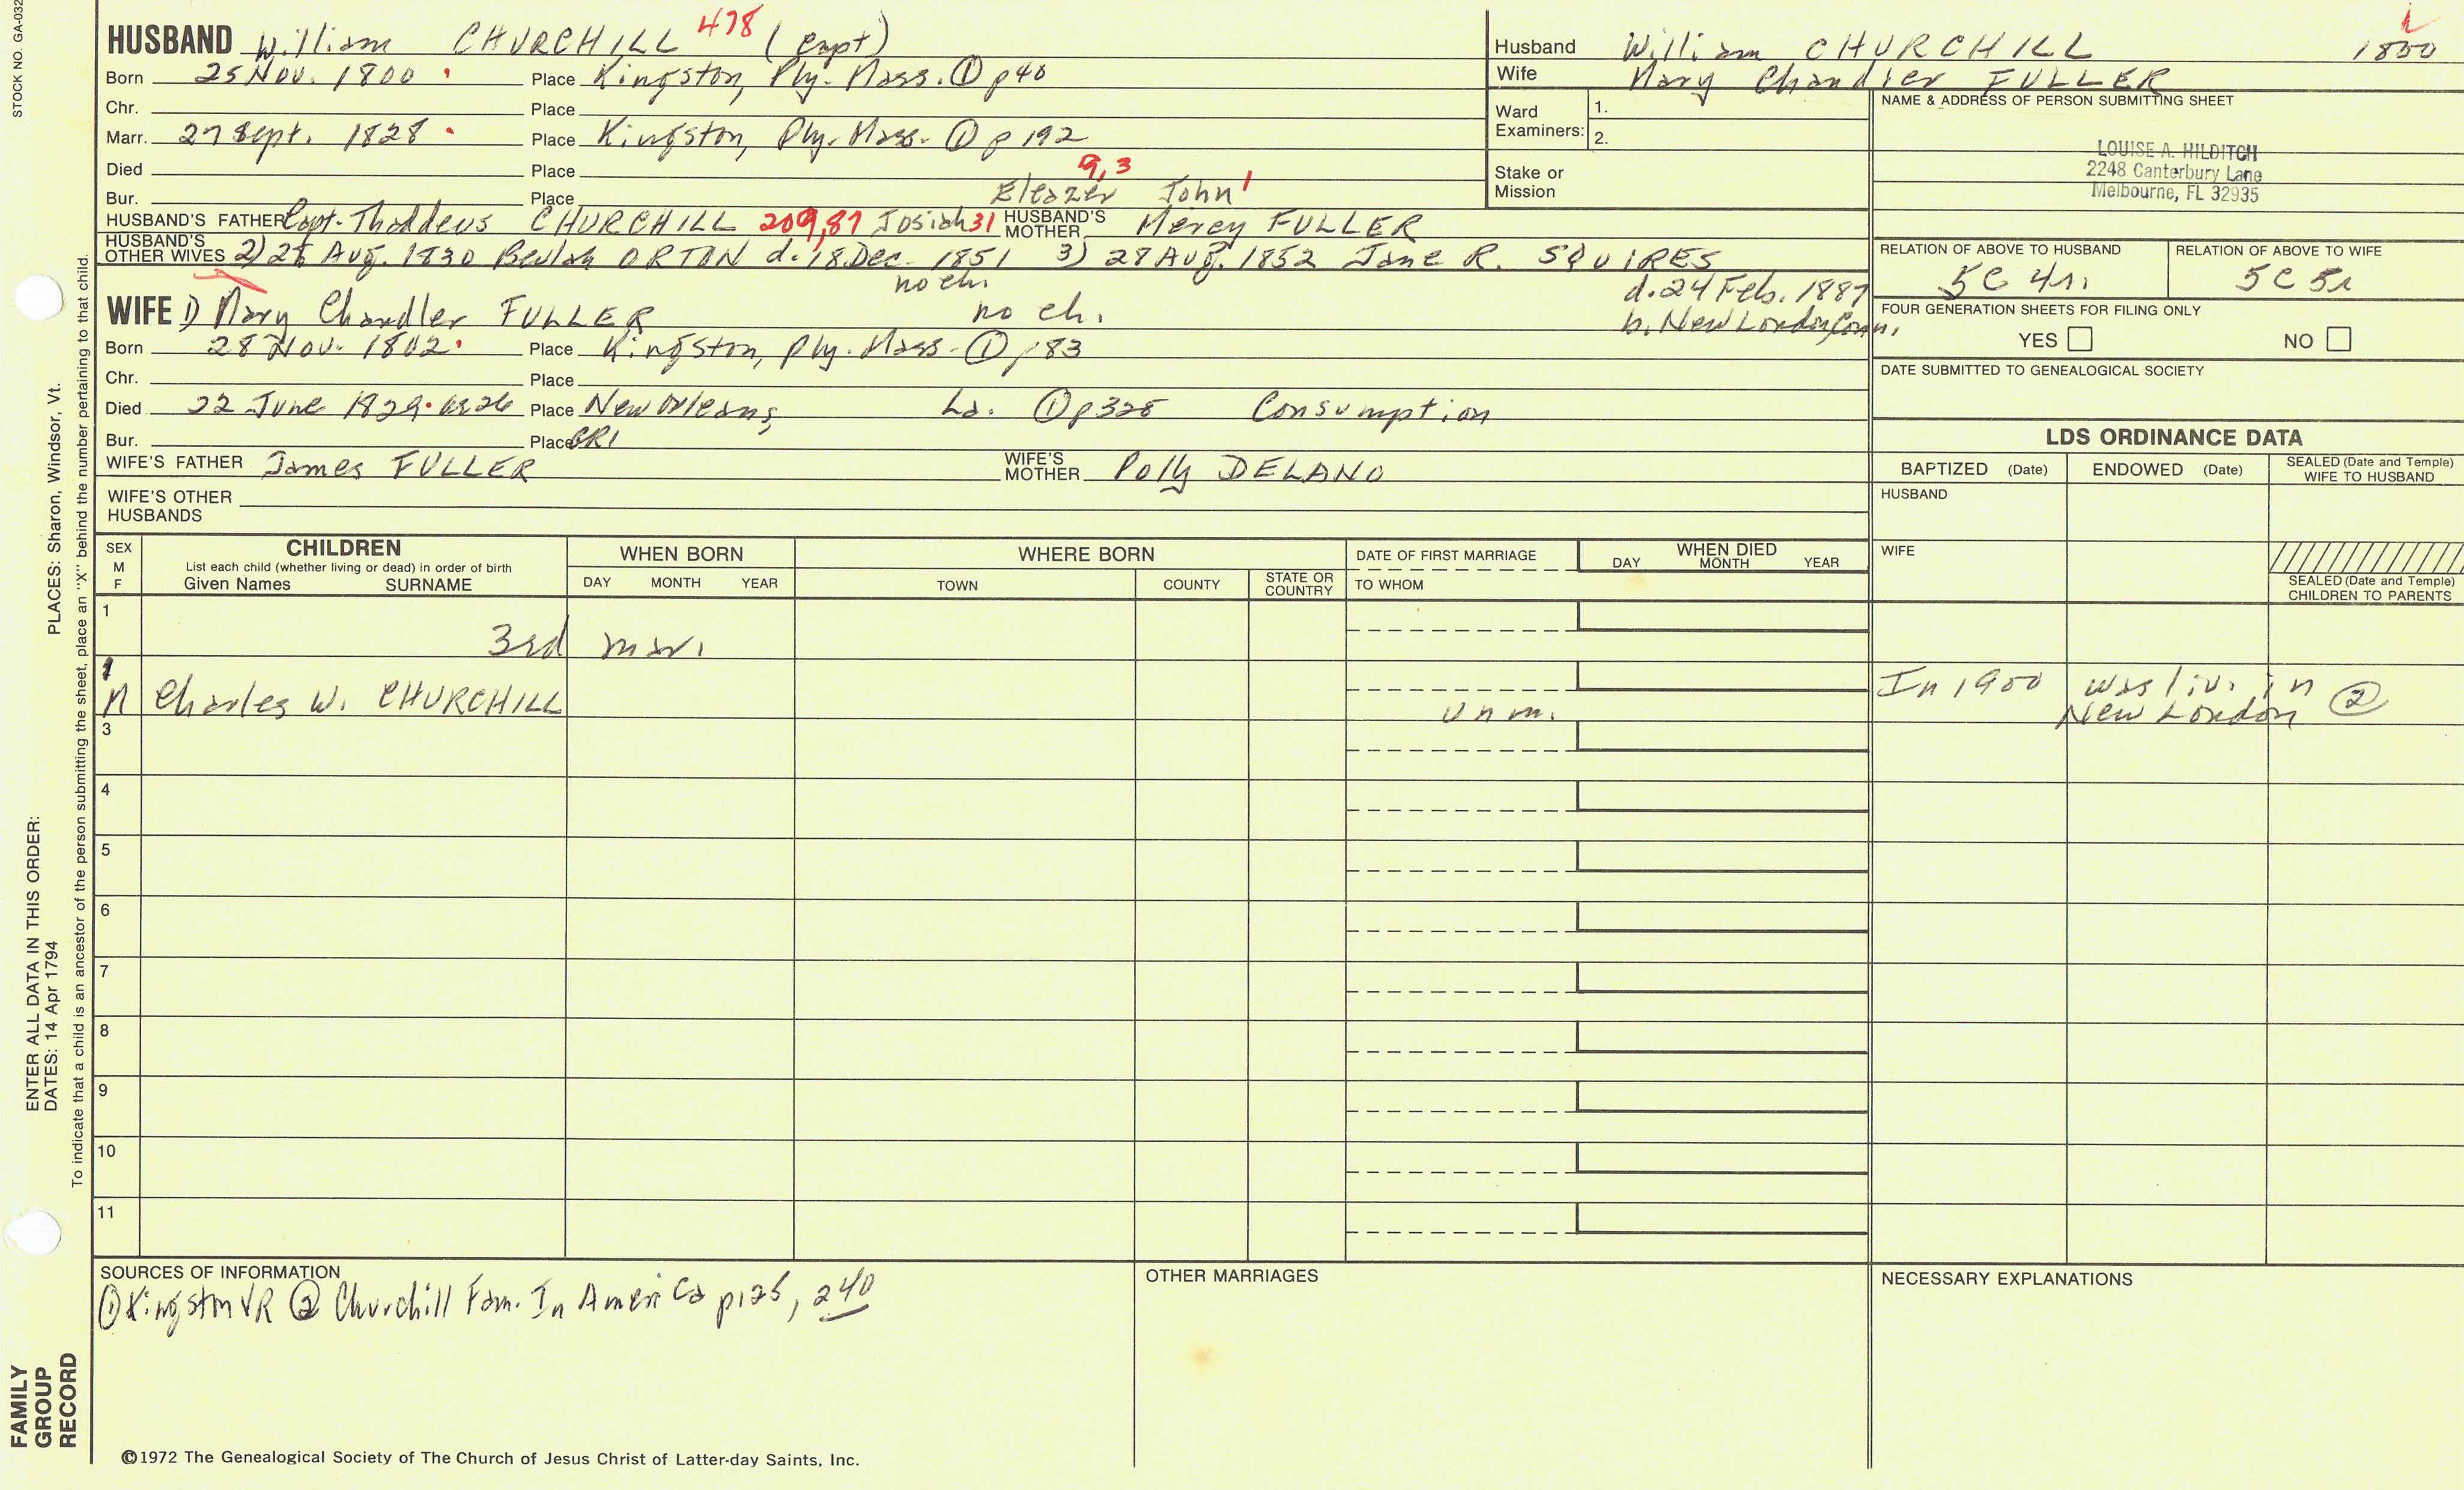 STOCK NO. GA-032
HUSBAND William CHURCHILL 478 (Capt)
Born 25 Nov. 1800 Place Kingston, Ply. Mass. ① p40
Chr. Place
Marr. 27 Sept. 1828 Place Kingston, Ply. Mass. ① p 192
Died Place
Bur. Place
9, 3
Eleazer John 1
HUSBAND'S FATHER Capt. Thaddeus CHURCHILL 209,87 Josiah 31 HUSBAND'S MOTHER Mercy FULLER
HUSBAND'S OTHER WIVES 2) Aug. 1830 Beulah ORTON d. 18 Dec. 1851 3) 28 Aug. 1852 Jane R. SQUIRES
no ch.
d. 24 Feb. 1887
b. New London, Conn.
WIFE 1) Mary Chandler FULLER no ch.
Born 28 Nov. 1802 Place Kingston, Ply. Mass. ① p83
Chr. Place
Died 22 June 1829 ae 26 Place New Orleans, La. ① p328 Consumption
Bur. Place GR1
WIFE'S FATHER James FULLER WIFE'S MOTHER Polly DELANO
WIFE'S OTHER HUSBANDS
Husband William CHURCHILL 1800
Wife Mary Chandler FULLER
Ward Examiners: 1.
2.
Stake or Mission
NAME & ADDRESS OF PERSON SUBMITTING SHEET
LOUISE A. HILDITCH
2248 Canterbury Lane
Melbourne, FL 32935
RELATION OF ABOVE TO HUSBAND RELATION OF ABOVE TO WIFE
5C 4r. 5C 5r
FOUR GENERATION SHEETS FOR FILING ONLY
YES NO
DATE SUBMITTED TO GENEALOGICAL SOCIETY
LDS ORDINANCE DATA
BAPTIZED (Date) ENDOWED (Date) SEALED (Date and Temple) WIFE TO HUSBAND
HUSBAND
WIFE
SEALED (Date and Temple) CHILDREN TO PARENTS
SEX M F
CHILDREN
List each child (whether living or dead) in order of birth
Given Names SURNAME
WHEN BORN
DAY MONTH YEAR
WHERE BORN
TOWN COUNTY STATE OR COUNTRY
DATE OF FIRST MARRIAGE
TO WHOM
WHEN DIED
DAY MONTH YEAR
1
3rd mar.
1
M Charles W. CHURCHILL unm. In 1900 was liv. in New London ②
3
4
5
6
7
8
9
10
11
SOURCES OF INFORMATION
① Kingston VR ② Churchill Fam. In America p125, 240
OTHER MARRIAGES
NECESSARY EXPLANATIONS
©1972 The Genealogical Society of The Church of Jesus Christ of Latter-day Saints, Inc.
FAMILY GROUP RECORD
ENTER ALL DATA IN THIS ORDER:
DATES: 14 Apr 1794
PLACES: Sharon, Windsor, Vt.
To indicate that a child is an ancestor of the person submitting the sheet, place an "X" behind the number pertaining to that child.